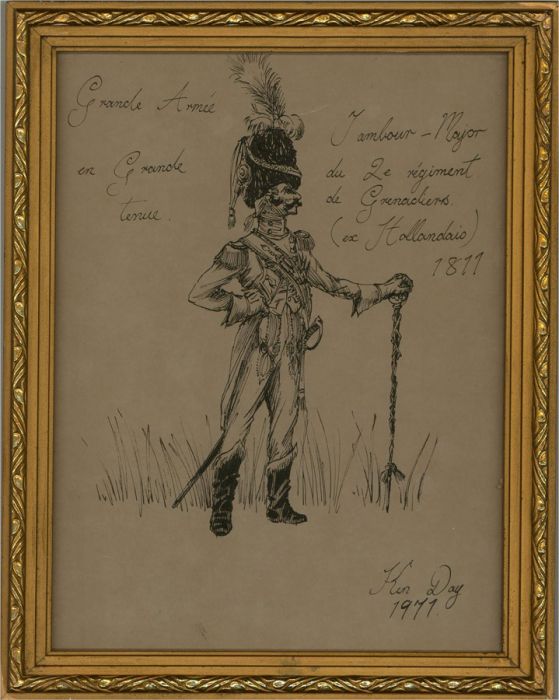 Grande Armée
en Grande
tenue.
Tambour - Major
du 2e régiment
de Grenadiers.
(ex Hollandais)
1811
Ken Day
1971.